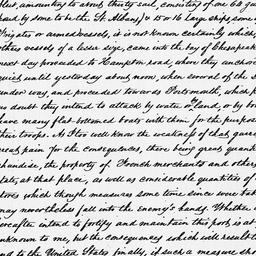 fleet, amounting to about thirty sail, consisting of one 64 gu
said by some to be the St. Albans, & 15 or 16 large ships some of
Privates or armed vessels, it is not known certainly which,
others vessels of a lesser size, came into the bay of Chesapeak
next day proceeded to Hampton road, where they anchor
quiet until yesterday about noon, when several of the
under way, and proceeded towards Portsmouth, which p
no doubt they intend to attack by water or land, or by bo
have many flat-bottomed boats with them for the purpose
their troops. As I too well know the weakness of that garr
great pain for the consequences, there being great quant
chandise, the property of French merchants and others
state, at that place, as well as considerable quantities of
stores, which though measures some time since were tak
may nevertheless fall into the enemy's hands. Whether
hereafter intend to fortify and maintain this post, is at
unknown to me, but the consequences which will result t
and to the United States finally, if such a measure sho